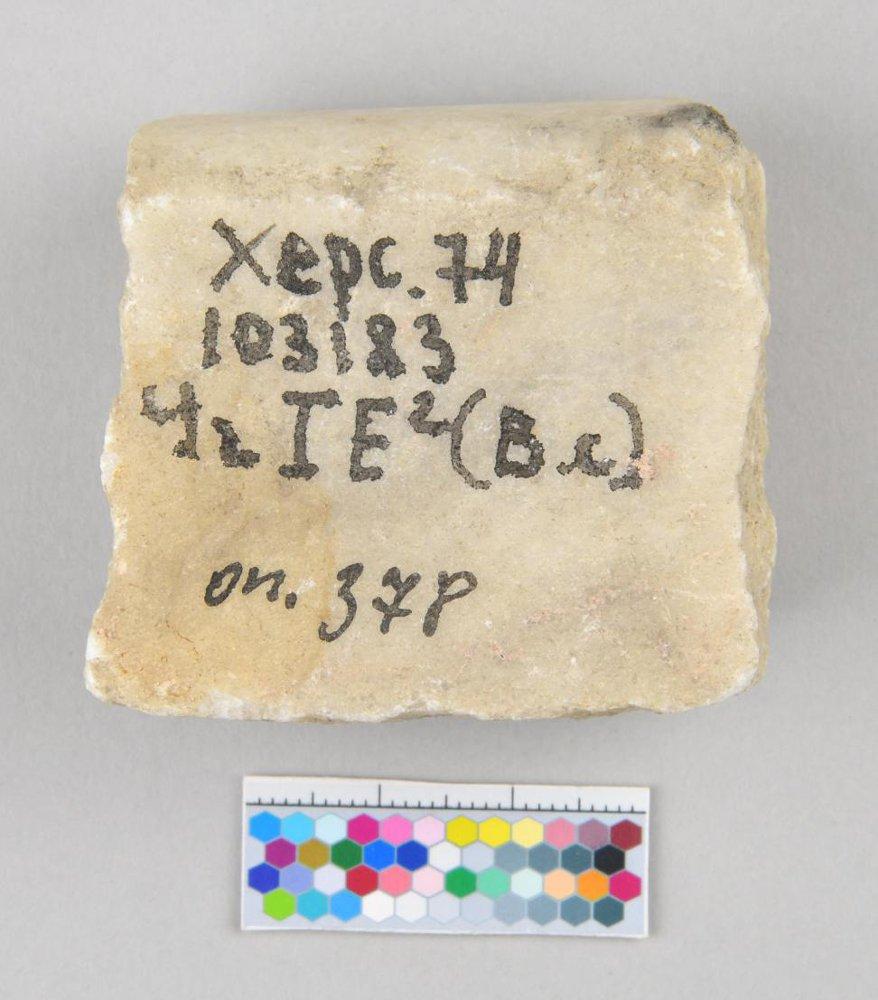 Херс. 74
103183
Чг IE²(Вс)
оп. 378